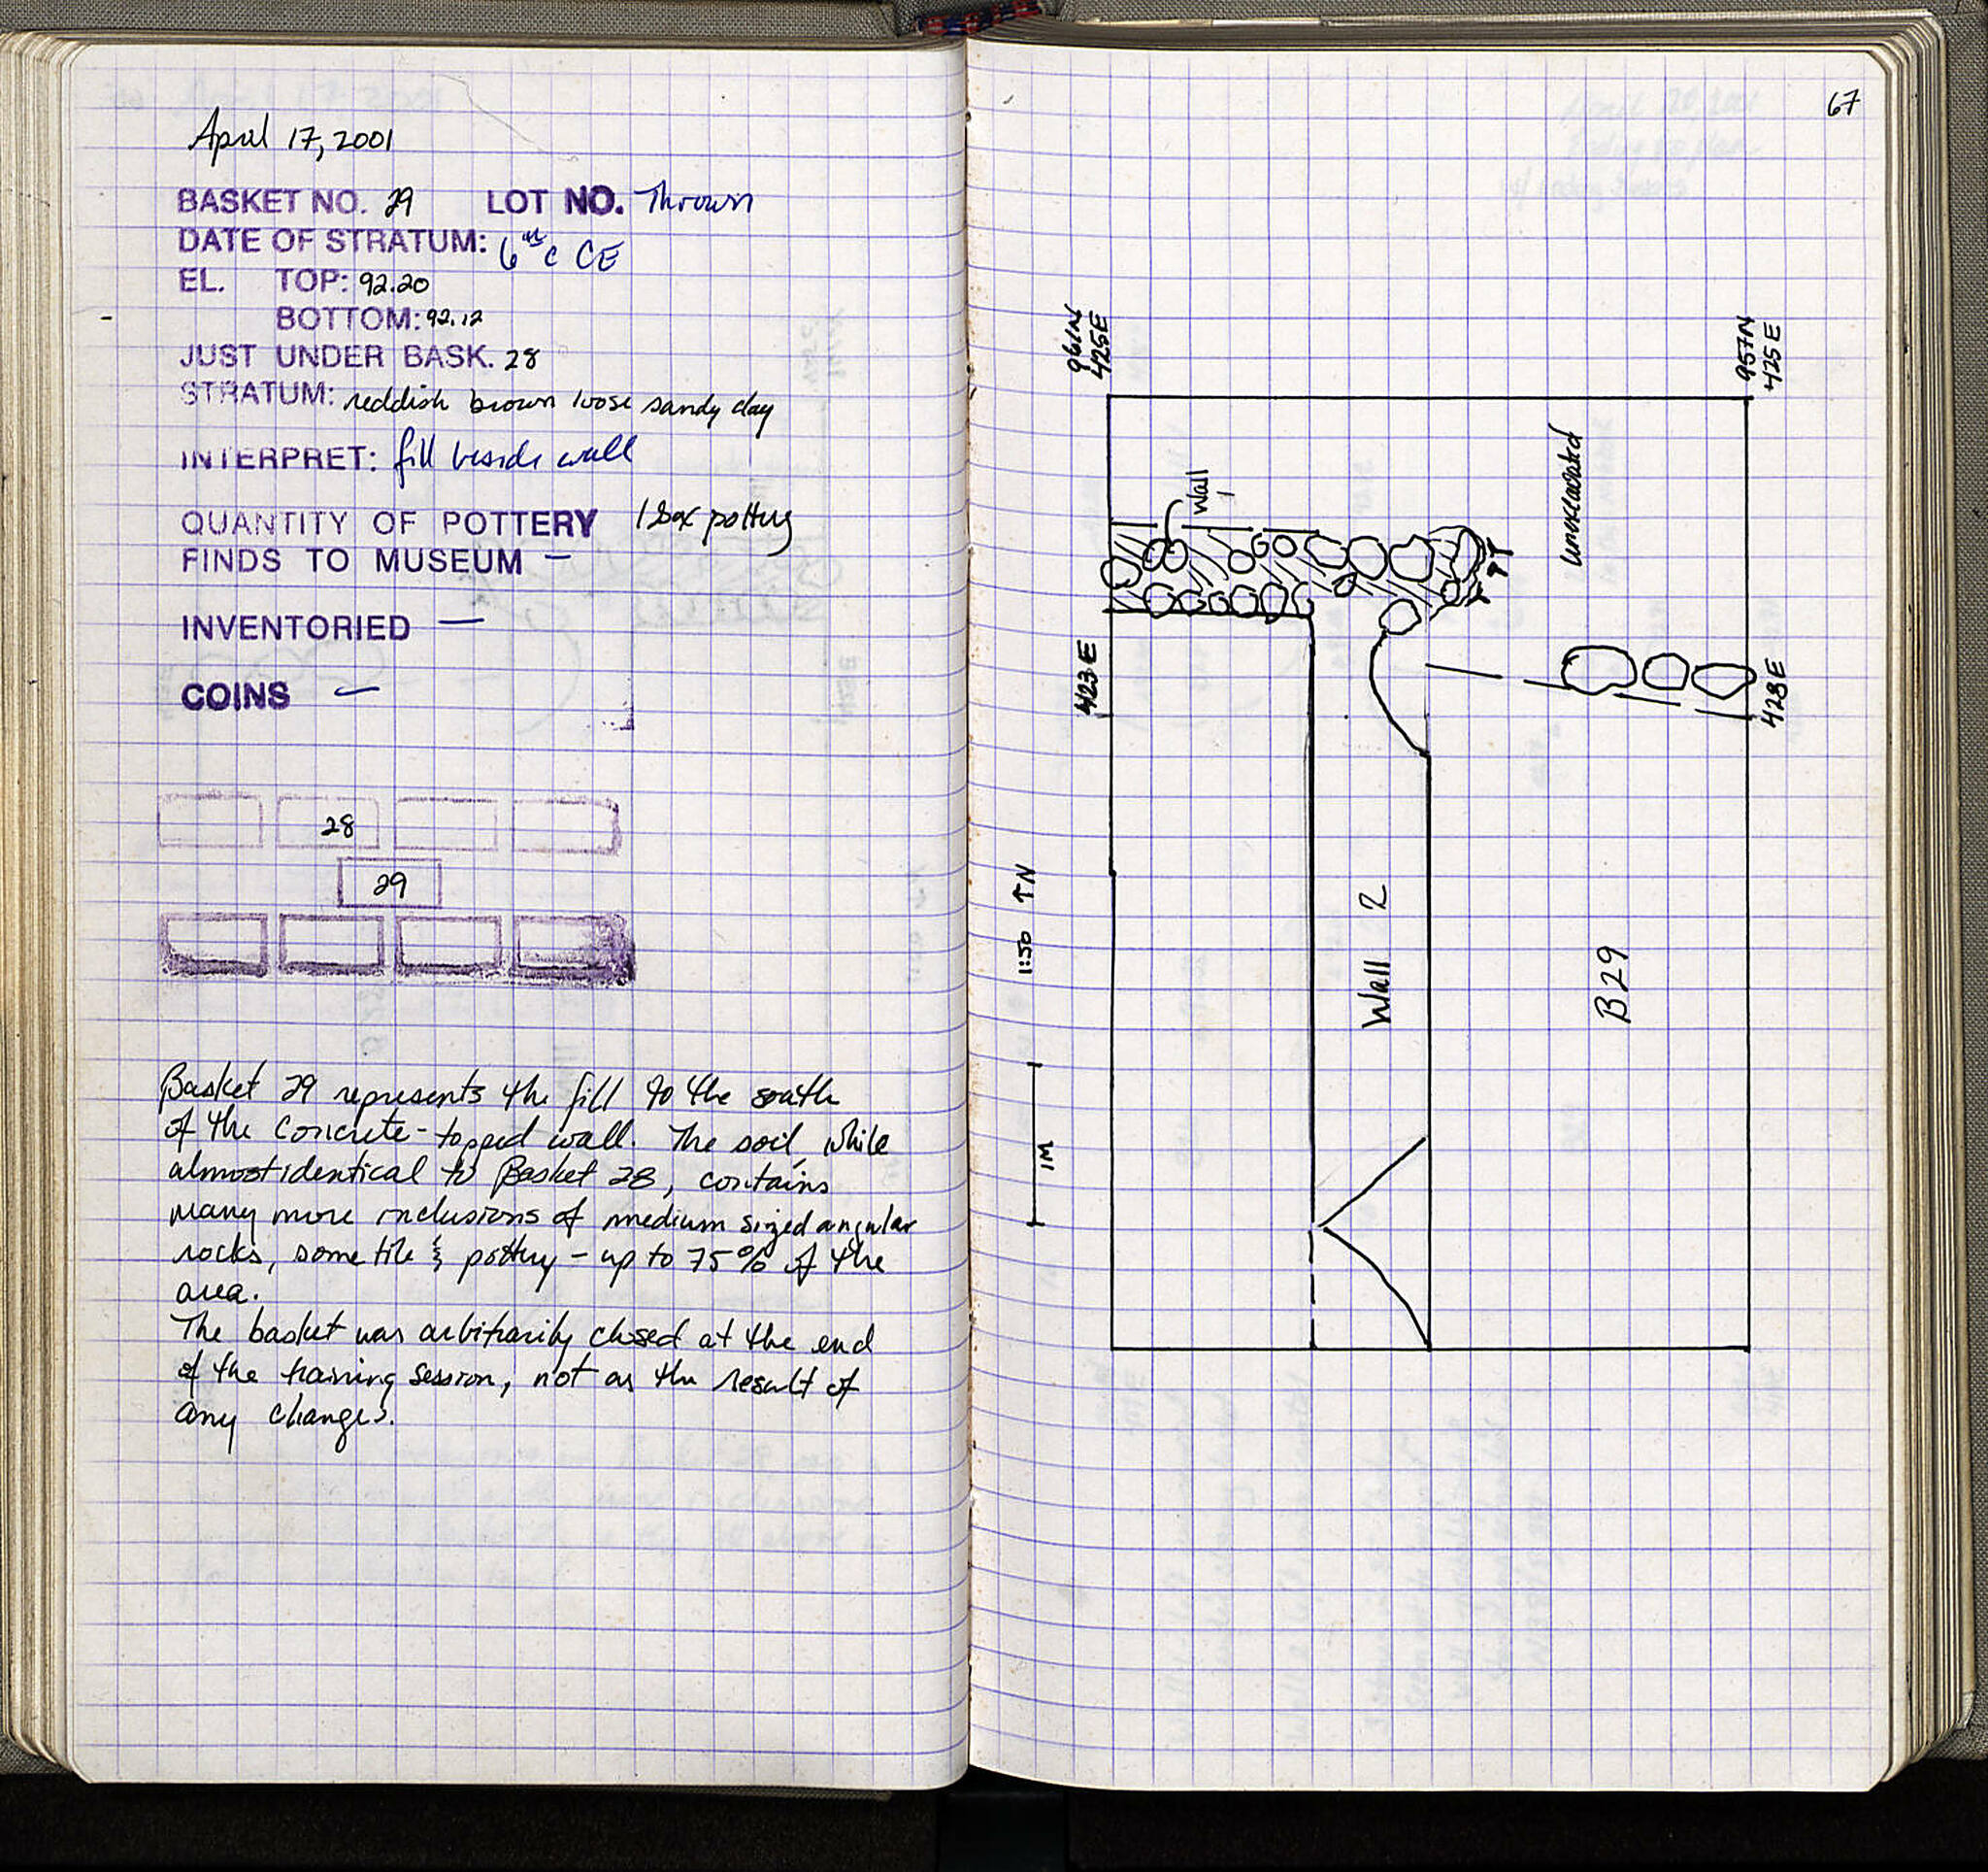 April 17, 2001
BASKET NO. 29 LOT NO. Thrown
DATE OF STRATUM: 6th c CE
EL. TOP: 92.20
BOTTOM: 92.12
JUST UNDER BASK. 28
STRATUM: reddish brown loose sandy clay
INTERPRET: fill beside wall
QUANTITY OF POTTERY 1 Box pottery
FINDS TO MUSEUM —
INVENTORIED —
COINS —
28
29
Basket 29 represents the fill to the south
of the concrete-topped wall. The soil, while
almost identical to Basket 28, contains
many more inclusions of medium sized angular
rocks, some tile & pottery - up to 75% of the
area.
The basket was arbitrarily closed at the end
of the training session, not as the result of
any changes.
67
961N
425E
957N
425E
Wall
1
unexcavated
423E
428E
1:50 ↑N
1M
Wall 2
B29